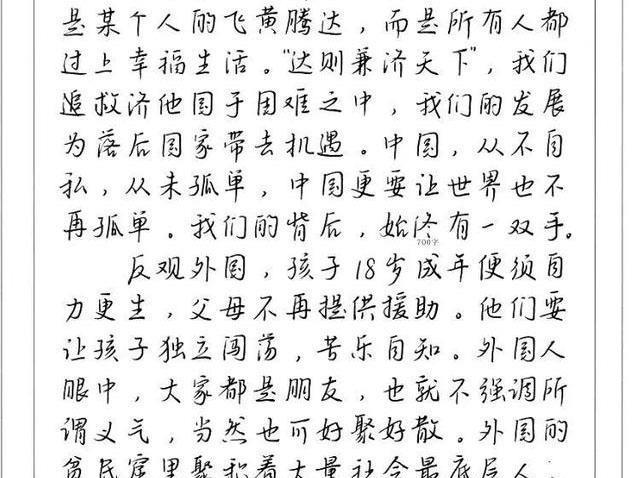 是某个人的飞黄腾达，而是所有人都
过上幸福生活。“达则兼济天下”，我们
追救济他国于困难之中，我们的发展
为落后国家带去机遇。中国，从不自
私，从未孤单，中国更要让世界也不
再孤单。我们的背后，始终有一双手。
700字
反观外国，孩子18岁成年便须自
力更生，父母不再提供援助。他们要
让孩子独立闯荡，苦乐自知。外国人
眼中，大家都是朋友，也就不强调所
谓义气，当然也可好聚好散。外国的
贫民窟里聚积着大量社会最底层人，